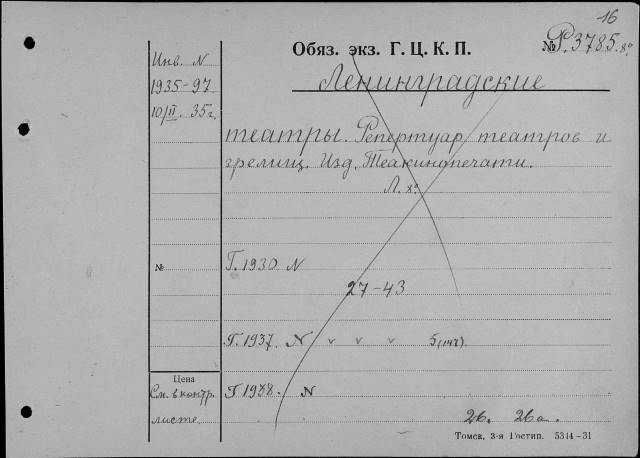 16
Обяз. экз. Г. Ц. К. П. № Р. 3785. 8º
Инв. N
1935-97
10/II. 35 г.
Ленинградские
театры. Репертуар театров и
зрелищ. Изд. Теакинопечати.
Л. 8º.
№
Г. 1930 N
27-43
Г. 1937. N v v v 5
Цена
См. в контр.
листе.
Г 1938. N
26. 26а.
Томск, 3-я Гостип. 5344-31